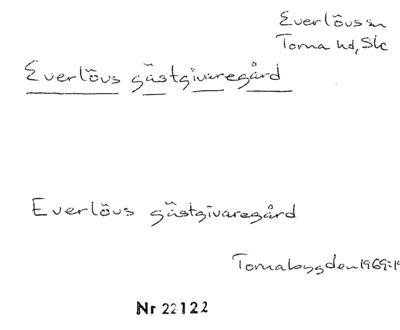 Everlövs sn
Torna hd, Sk
Everlövs gästgivaregård
Everlövs gästgivaregård
Tornabygden 1969:1
Nr 22122